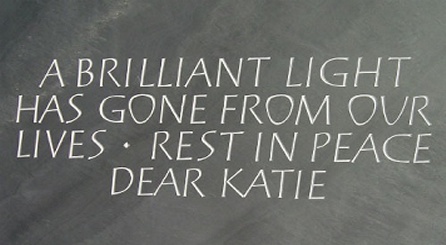 A BRILLIANT LIGHT
HAS GONE FROM OUR
LIVES · REST IN PEACE
DEAR KATIE